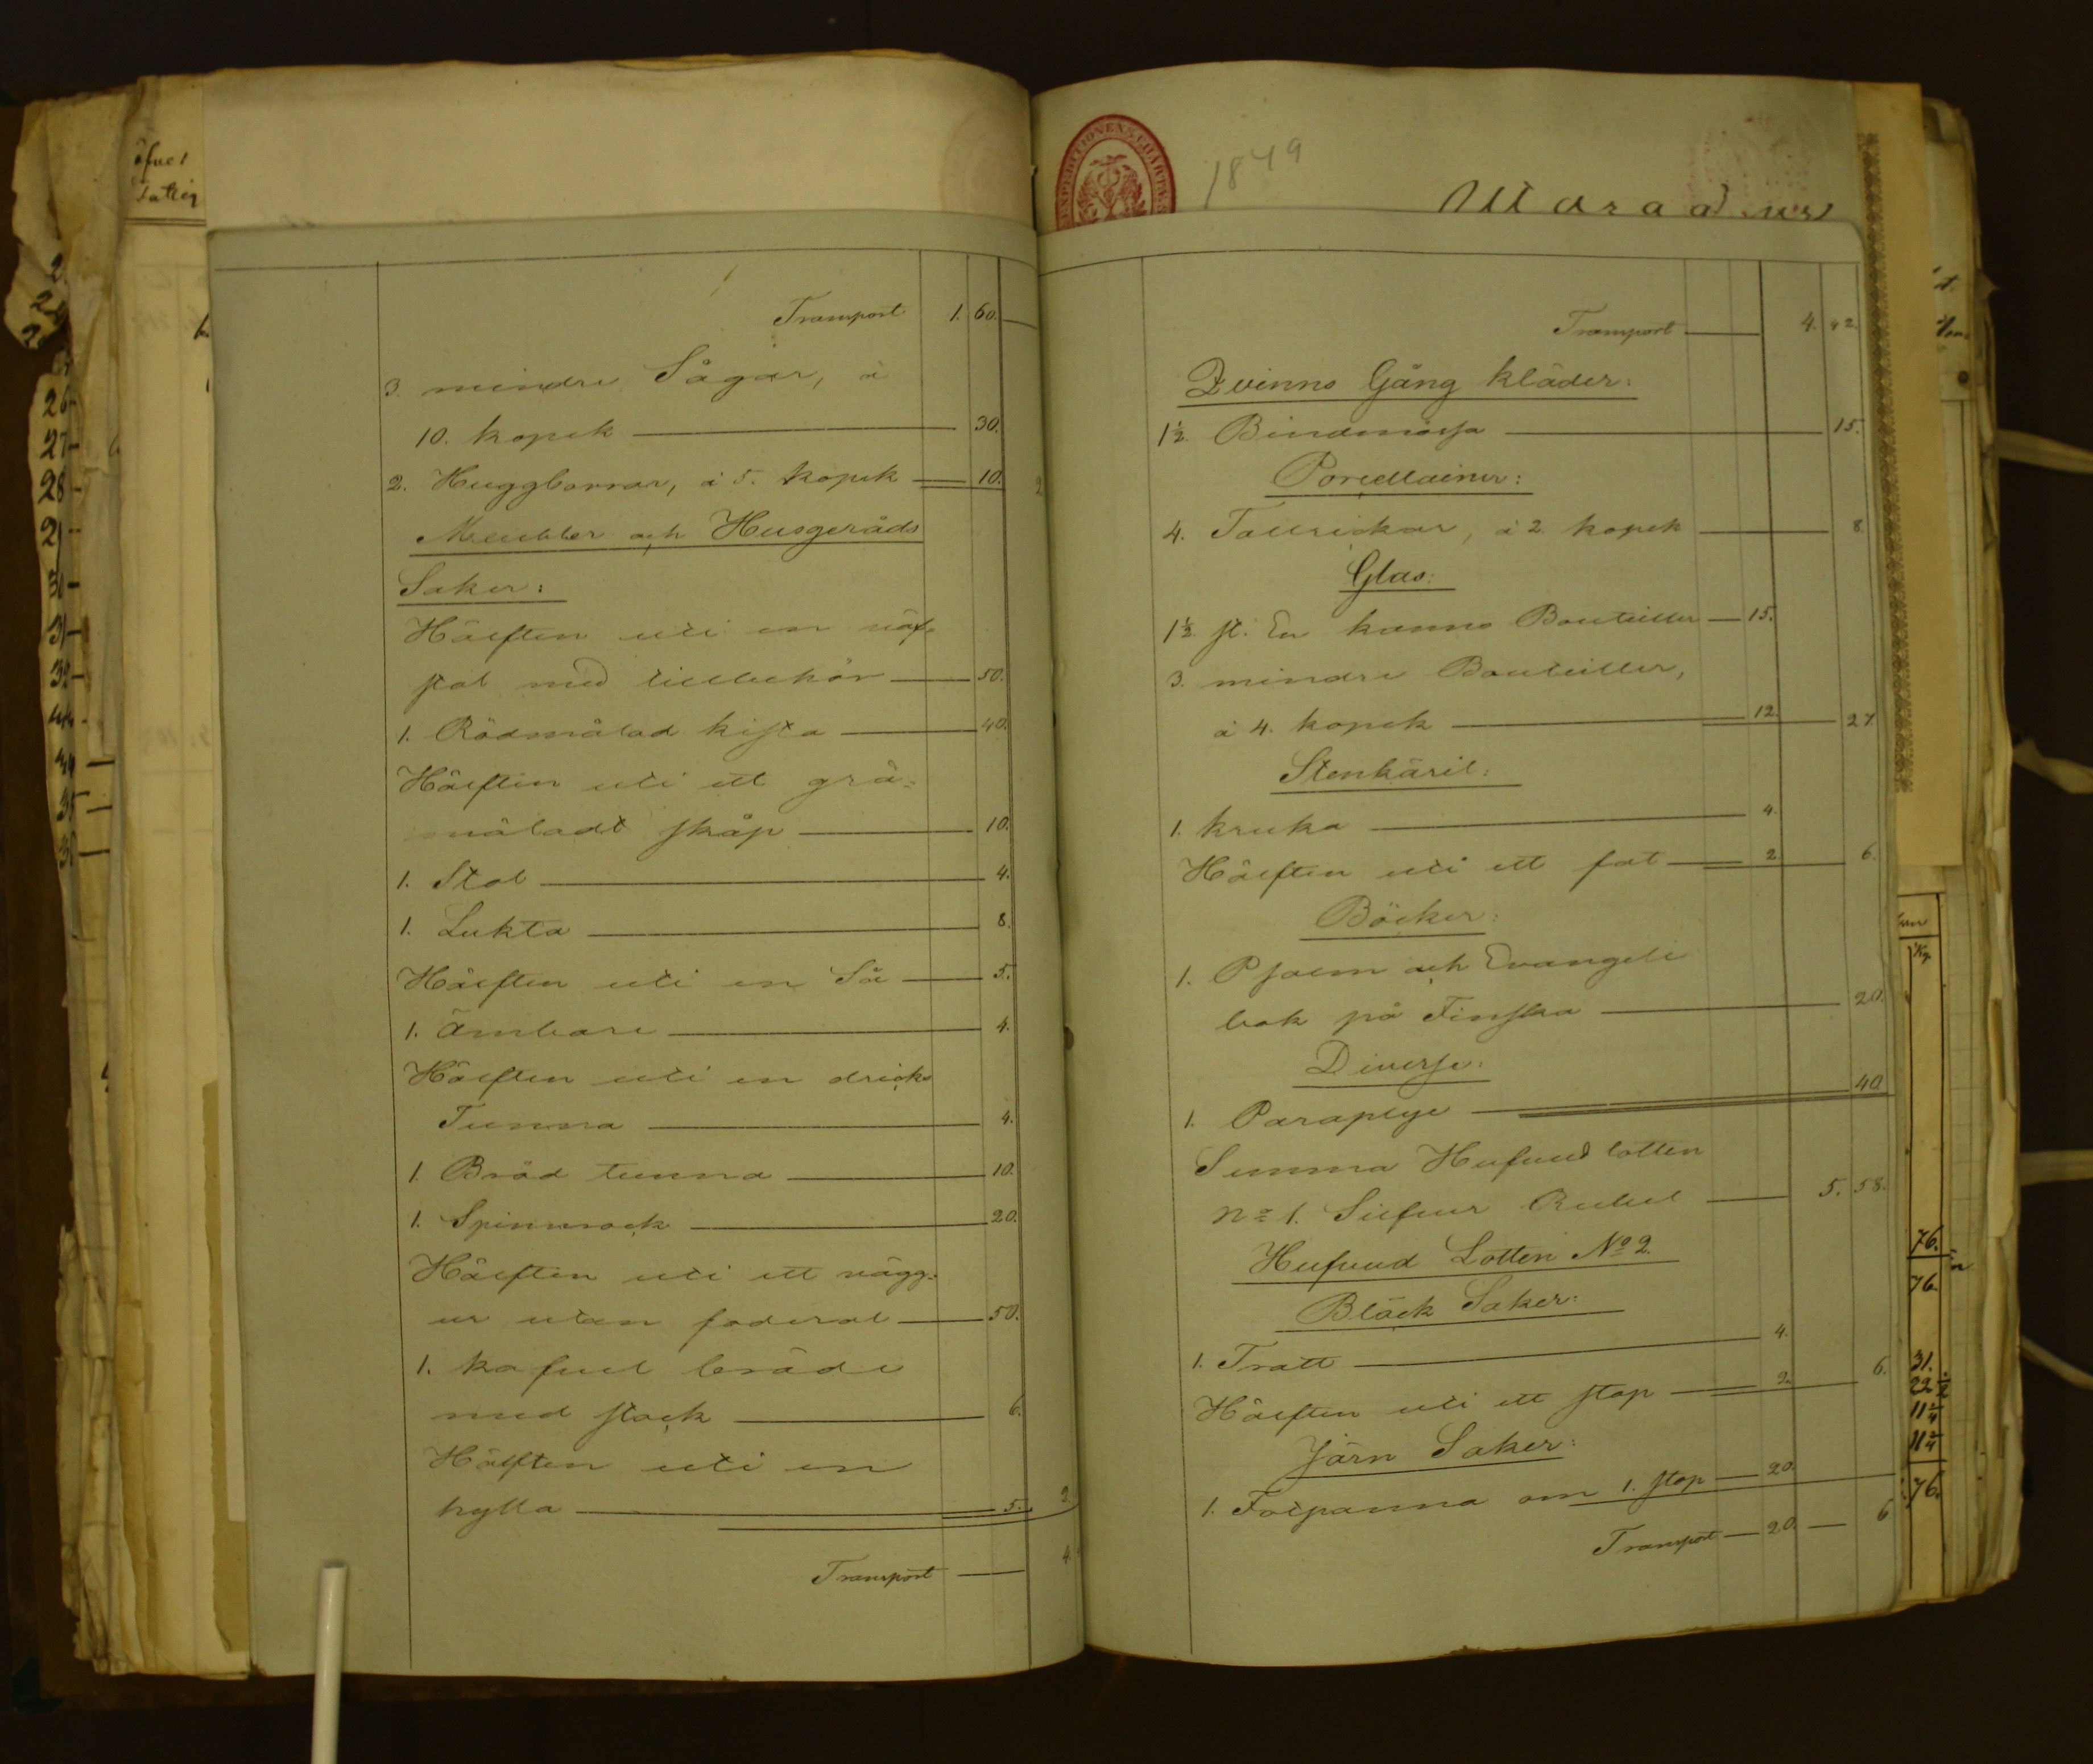 öfver
1849
Transport 1. 60.
3. mindre Sågar, à
10. kopek 30.
2. Huggborrar, à 5. kopek 10.
Meubler och Husgeråds
Saker:
Hälften uti en väf-
stol med tillbehör 50.
1. Rödmålad kista 40.
Hälften uti ett grå-
måladt skåp 10.
1. Stol 4.
1. Lukta 8.
Hälften uti en Så 5.
1. Ämbare 4.
Hälften uti en dricks
Tunna 4.
1. Bröd tunna 10.
1. Spinnrock 20.
Hälften uti ett vägg-
ur utan foderal 50.
1. kafvel bräde
med stock 6.
Hälften uti en
hylla 5. 2.
Transport 4.
Transport 4. 42.
Qvinns Gång kläder:
1½. Bindmössa 15.
Porcellainer:
4. Tallrickar, à 2. kopek 8.
Glas:
1½. st. En kanns Bouteiller 15.
3. mindre Bouteiller,
à 4. kopek 12. 27.
Stenkäril:
1. kruka 4.
Hälften uti ett fat 2. 6.
Böcker:
1. Psalm och Evangeli
bok på Finska 20.
Diverse:
1. Paraplye 40
Summa Hufvud lotten
No 1. Silfver Rubel 5. 58.
Hufvud Lotten No 2.
Bläck Saker:
1. Tratt 4.
Hälften uti ett stop 2. 6.
Järn Saker:
1. Fotpanna om 1. stop 20.
Transport 20. 6
26
27
28
76.
76.
31.
22½
11¼
11¼
76.